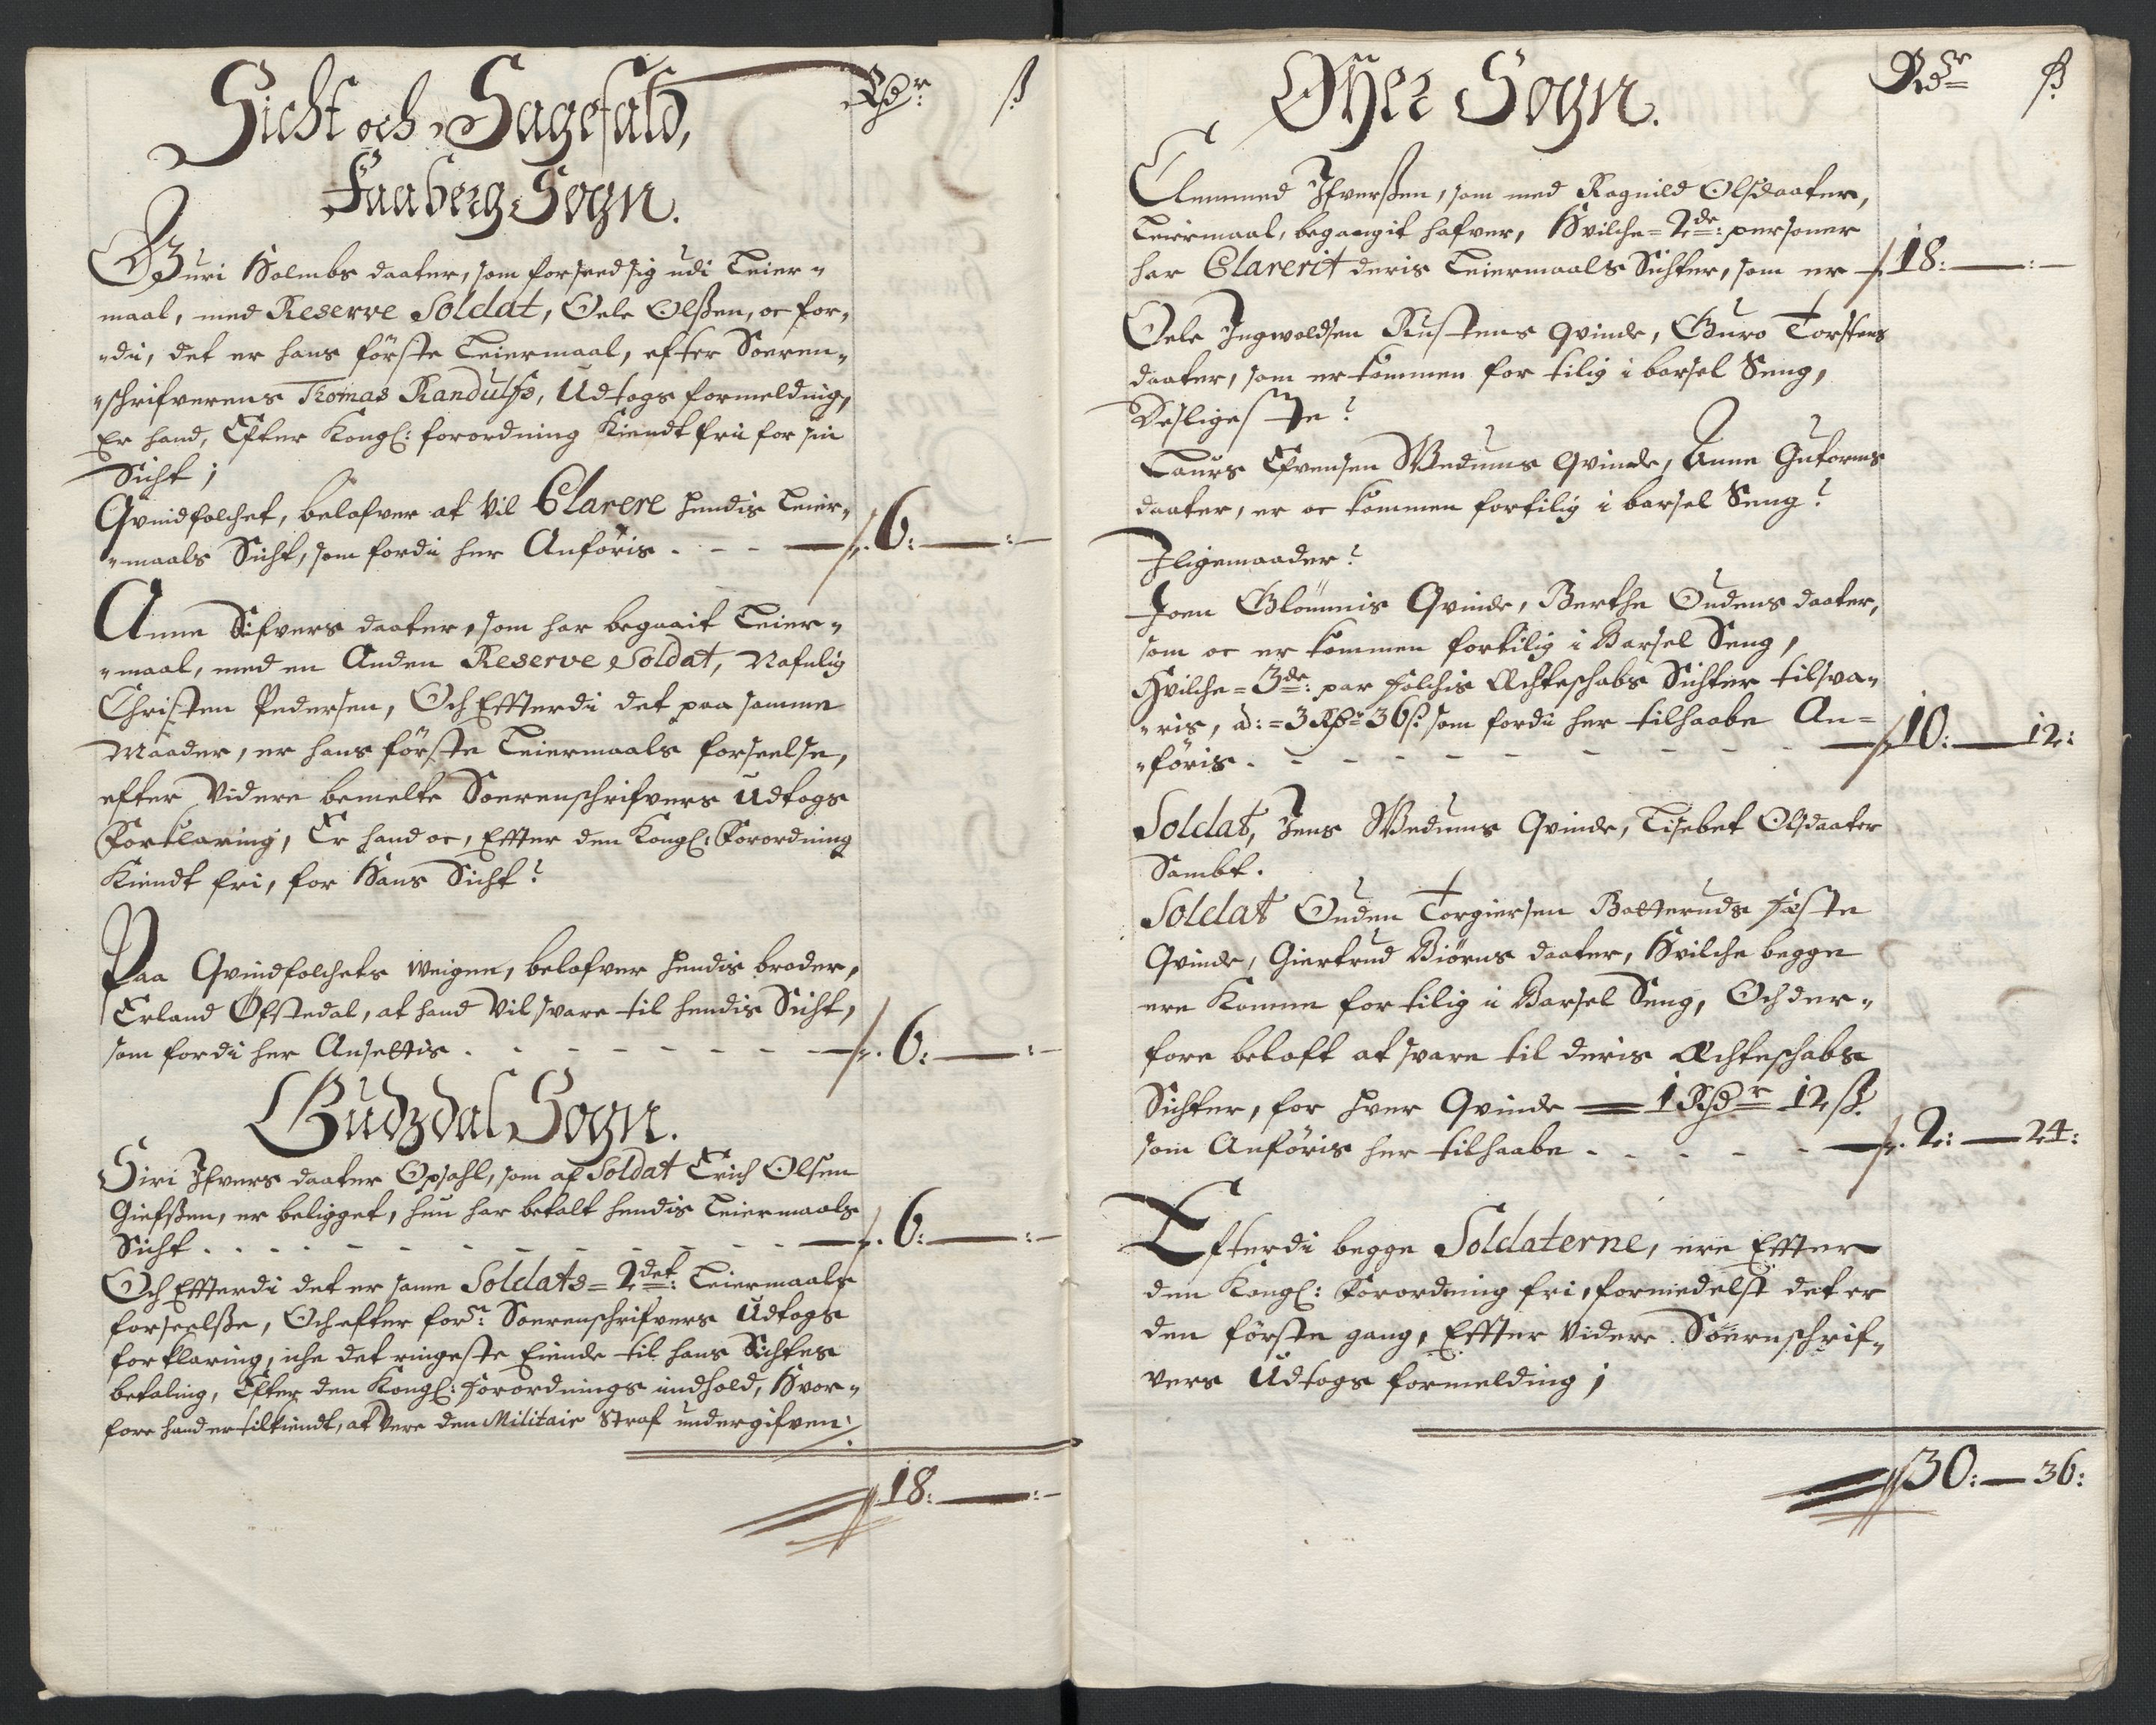 Sicht och Sagefald,
Rdr: ß
Faaberg Sogn.
Guri Holmbs daater, som forseed sig udi Leier„
maal, med Reserve Soldat, Oele Olßen, oc for„
„di, det er hans förste Leiermaal, efter Soeren„
„schrifverens Tomas Randulfs, Udtogs formelding,
Er hand, Efter Kongl: forordning Kiendt fri for sin
Sicht;
Qvindfolchet, belofver at vil Clarere hendis Leier„
„maals Sicht, som fordi her Anföris . - - 6: — : —
Anne Sifvers daater, som har begaait Leier„
„maal, med en Anden Reserve Soldat, Nafnlig
Christen Pedersen, Och Effterdi det paa samme
Maader, er hans förste Leiermaals forseelse,
efter videre bemelte Soerenschrifvers Udtogs
Forklaring, Er hand oc, Effter den Kongl: Forordning
Kiendt fri, for Hans Sicht?
Paa Qvindfolchets weigne, belofver hendis broder,
Erland Ofstedal, at hand vil svare til hendis Sicht,
som fordi her Ansettis . - - - 6: — : —
Gudzdal Sogn.
Siri Ifvers daater Opsahl, som af Soldat Erich Olsen
Giefßen, er beligget, hun har betalt hendis Leiermaals
Sicht . . . . - - - 6: — : —
Och Effterdi det er samme Soldats = 2det: Leiermaals
forseelße, Och efter forne: Soerenschrifvers Udtogs
forklaring, iche det ringeste Eiende til hans Sichtes
betaling, Efter den Kongl: forordnings indhold, Hvor„
fore hand er tilkiendt, at vere den Militair Straf undergifven:
18: — : —
Öÿer Sogn.
Rdr ß
Amund Ifverßen, som med Ragnild Olsdaater,
Leiermaal, begaangit hafver, Hvilche = 2de: personer
har Clarerit deris Leiermaals Sichter, som er 18: — : —
Oele Ingwoldsen Rustens qvinde, Guro Torstens
daater, som er kommen for tilig i barsel Seng,
Desligeste?
Laurs Evensen Wedums qvinde, Anne Gutorms
daater, er oc kommen fortilig i barsel Seng?
Iligemaader?
Joen Glömmis Qvinde, Berthe Oudens daater,
som oc er kommen fortilig i Barsel Seng,
Hvilche = 3de: par folchis Ächteschabs Sichter tilsva„
„ris, á: = 3 Rdr 36 ß: som fordi her tilhaabe An=
„föris . - - - 10: — 12:
Soldat, Jens Wedums Qvinde, Lisebet Olsdaater
Sambt.
Soldat Ouden Torgiersen Batteruds fæste
Qvinde, Giertrud Biörns daater, Hvilche begge
ere Komne for tilig i Barsel Seng, Och der„
fore beloft at svare til deris Ächteschabs
Sichter, for hver Qvinde — 1 Rdr 12 ß
som Anföris her tilhaabe . - - - 2: — 24:
Efterdi begge Soldaterne, ere Effter
den Kongl: Forordning fri, formedelst det er
den förste gang, Effter videre Soernschrif„
vers Udtogs formelding;
30: — 36: